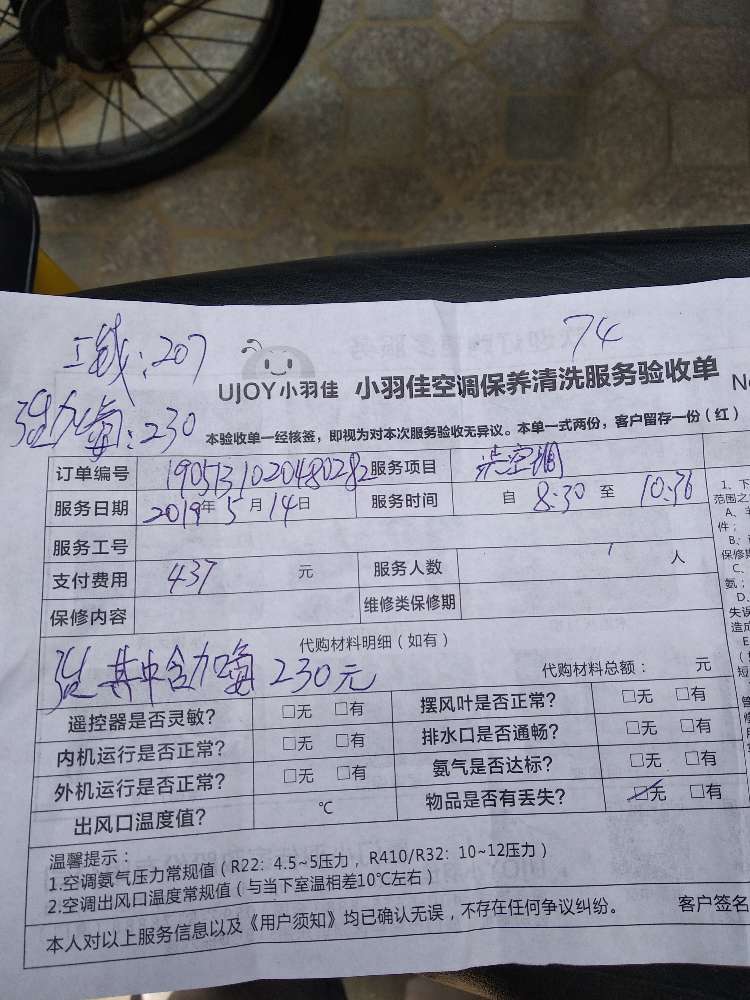 74
工钱：207
UJOY小羽佳 小羽佳空调保养清洗服务验收单 No
加氟：230
本验收单一经核签，即视为对本次服务验收无异议。本单一式两份，客户留存一份（红）
订单编号 1905131020480282 服务项目 洗空调
服务日期 2019年5月14日 服务时间 自 8:30 至 10:36
服务工号
支付费用 437 元 服务人数 1 人
保修内容 维修类保修期
代购材料明细（如有）
其中含加氟 230元 代购材料总额： 元
遥控器是否灵敏？ □无 □有 摆风叶是否正常？ □无 □有
内机运行是否正常？ □无 □有 排水口是否通畅？ □无 □有
外机运行是否正常？ □无 □有 氨气是否达标？ □无 □有
出风口温度值？ ℃ 物品是否有丢失？ □无 □有
温馨提示：
1.空调氨气压力常规值（R22：4.5~5压力，R410/R32：10~12压力）
2.空调出风口温度常规值（与当下室温相差10℃左右）
本人对以上服务信息以及《用户须知》均已确认无误，不存在任何争议纠纷。 客户签名
1、下
范围之
A、
件；
B、
保修期
C、
氨；
D、
失误
造成
E
短